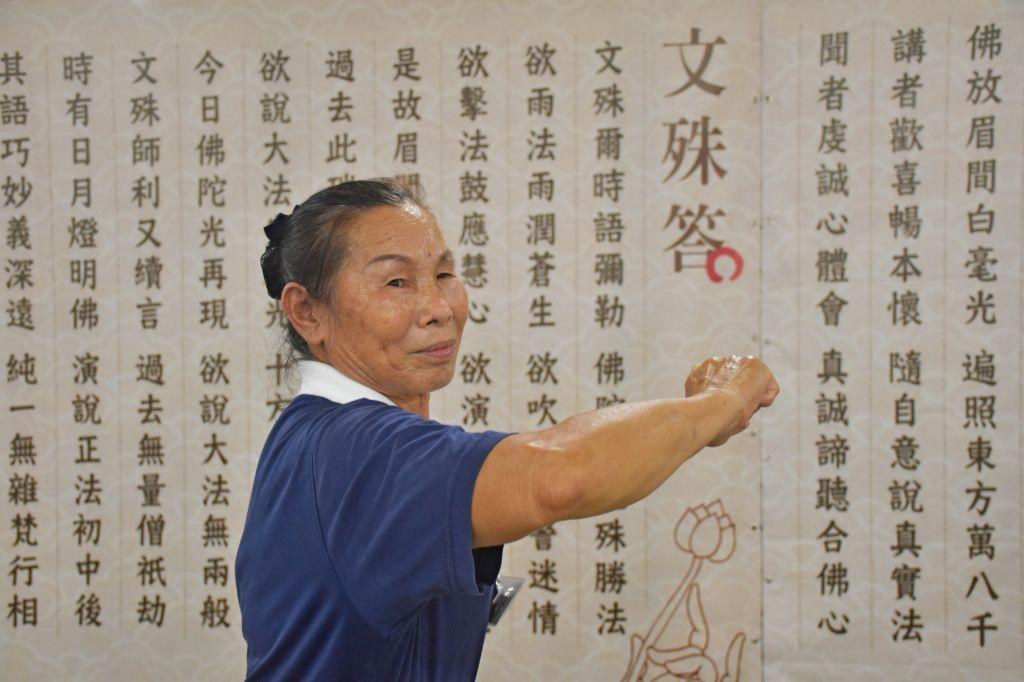 佛放眉間白毫光 遍照東方萬八千
講者歡喜暢本懷 隨自意說真實法
聞者虔誠心體會 真誠諦聽合佛心
文殊答
文殊爾時語彌勒 佛陀 殊勝法
欲雨法雨潤蒼生 欲吹 迷情
欲擊法鼓應慧心 欲演
是故眉
過去此
欲說大法 光 十方
今日佛陀光再現 欲說大法無兩般
文殊師利又續言 過去無量僧祇劫
時有日月燈明佛 演說正法初中後
其語巧妙義深遠 純一無雜梵行相